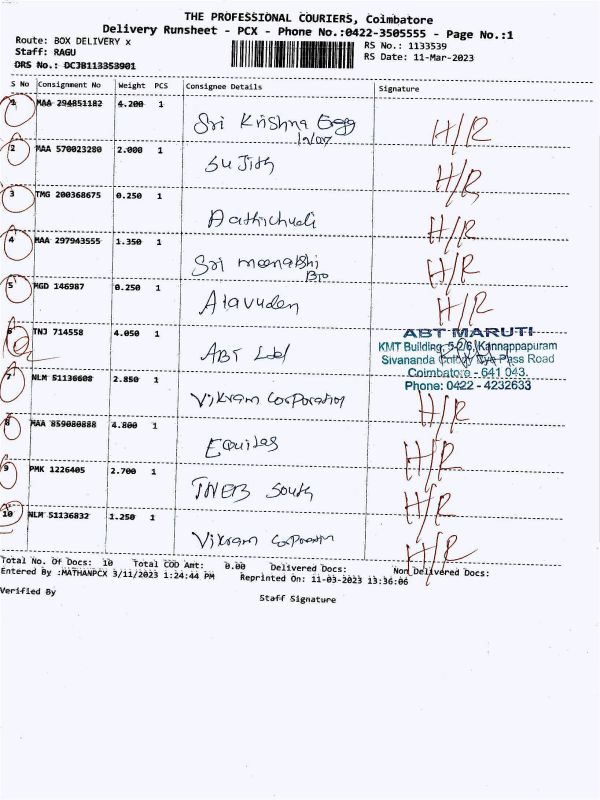 THE PROFESSIONAL COURIERS, Coimbatore
Delivery Runsheet - PCX - Phone No.:0422-3505555 - Page No.:1
Route: BOX DELIVERY x
Staff: RAGU
DRS No.: DCJB113353901
RS No.: 1133539
RS Date: 11-Mar-2023
S No Consignment No Weight PCS Consignee Details Signature
1 MAA 294851182 4.200 1
Sri Krishna H/R
2 MAA 570023280 2.000 1
Sujith H/R
3 TMG 200368675 0.250 1
Aathichudi H/R
4 MAA 297943555 1.350 1
Sri meenakshi H/R
5 MGD 146987 0.250 1
Alavuden H/R
6 TNJ 714558 4.050 1
ABT Ltd
ABT MARUTI
KMT Building, 5-2/6, Kannappapuram
Sivananda Colony Bye Pass Road
Coimbatore - 641 043.
Phone: 0422 - 4232633
7 NLM 51136608 2.850 1
Vikram Corporation H/R
8 MAA 859080888 4.800 1
Equitas H/R
9 PMK 1226405 2.700 1
TNEB South H/R
10 NLM 51136832 1.250 1
Vikram Corporation H/R
Total No. Of Docs: 10 Total COD Amt: 0.00 Delivered Docs: Non Delivered Docs:
Entered By :MATHANPCX 3/11/2023 1:24:44 PM Reprinted On: 11-03-2023 13:36:06
Verified By
Staff Signature